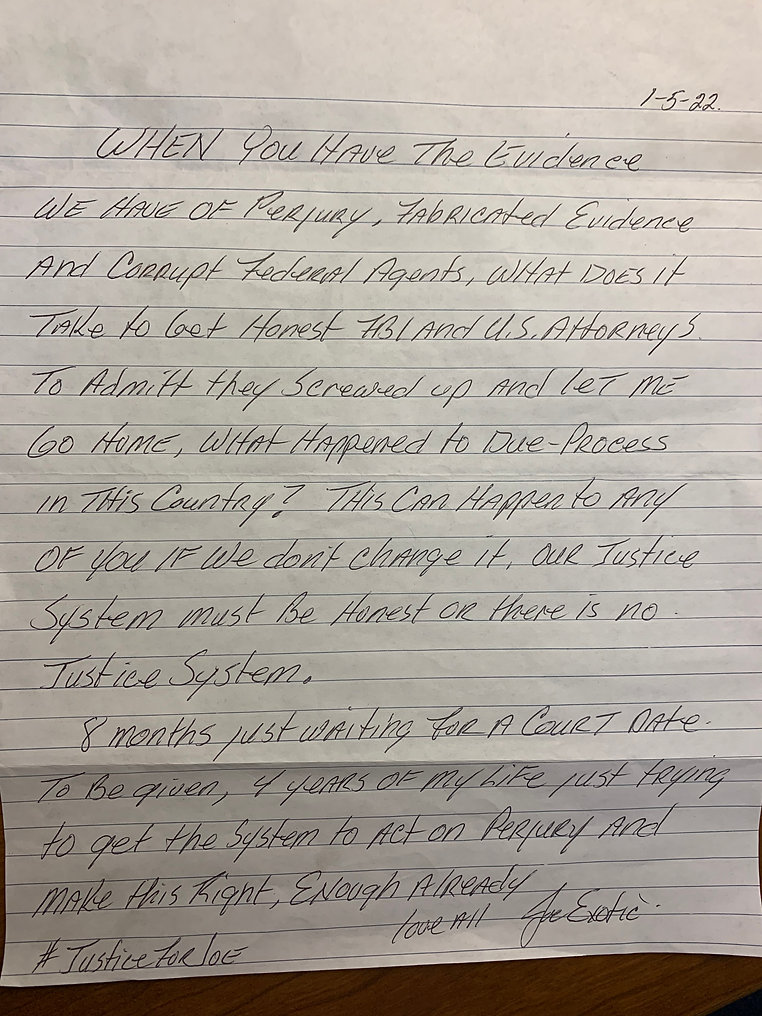 1-5-22.
WHEN YOU HAVE THE Evidence
WE HAVE OF PERJURY, FABRICATED Evidence
AND CORRUPT FEDERAL Agents, WHAT DOES it
TAKE to Get Honest FBI AND U.S. Attorneys.
To Admitt they Screwed up AND LET ME
GO HOME, WHAT HAPPENED to DUE-PROCESS
in THIS Country? THIS CAN HAPPEN to ANY
OF YOU IF WE don't CHANGE it, OUR Justice
System must BE Honest OR there is no.
Justice System.
8 months just WAITING FOR A COURT DATE.
To BE given, 4 YEARS OF my LIFE just TRYING
to get the System to ACT on PERJURY AND
MAKE this Right, ENOUGH ALREADY
Love All Joe Exotic.
#JusticeForJOE